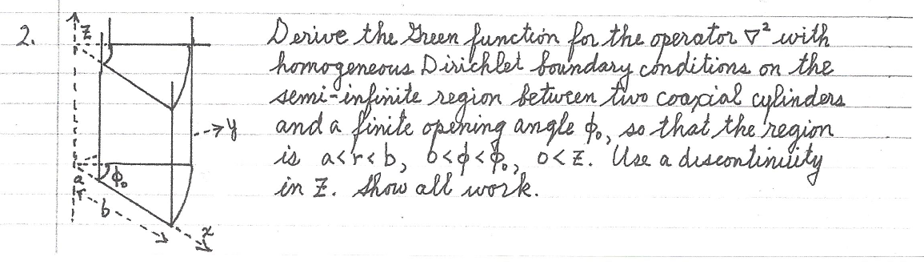 2.
Derive the Green function for the operator ∇² with
homogeneous Dirichlet boundary conditions on the
semi-infinite region between two coaxial cylinders
and a finite opening angle ϕ₀, so that the region
is a<r<b, 0<ϕ<ϕ₀, 0<z. Use a discontinuity
in z. Show all work.
z
y
a
ϕ₀
r
b
x